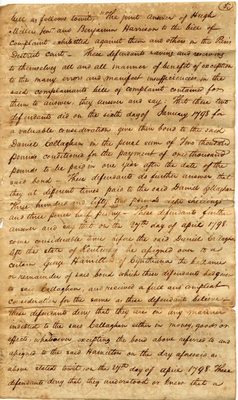 bill as follows towit, The joint Answer of Hugh
Millen Jent and Benjamin Harrison to the bill of
complaint exhibited against them and others in the
District Court. These defendants saving and reserving
to themselves all and all manner of benefit of exception
to the many errors and manifest insufficiencies in the
said complainants bill of complaint contained for
them to answer they answer and say. That these two
defendants did on the sixth day of January 1798 for
a valuable consideration give their bond to the said
Daniel Callaghan in the penal sum of Two thousand
pounds conditioned for the payment of one thousand
pounds to be paid in one year after the date of the
said bond. These defendants do further answer that
they at different times paid to the said Daniel Callaghan
Three hundred and fifty two pounds eight shillings
and three pence half penny. These defendants further
answer and say that on the 27th day of april 1798
come considerable time before the said Daniels
after the state of he assigned over to a
certain George Hamilton of Cynthiana the balance
or remainder of said bond which these defendants
to said Callaghan, and received a full and compleat
consideration for the same as these defendants believe
These defendants deny that they are in any manner
indebted to the said Callaghan either in money, goods or
effects whatsoever excepting the bond above referred to and
assigned to the said Hamilton on the day aforesaid as
above stated towit on the 27th day of april 1798. These
defendants deny that, they understood or knew that a